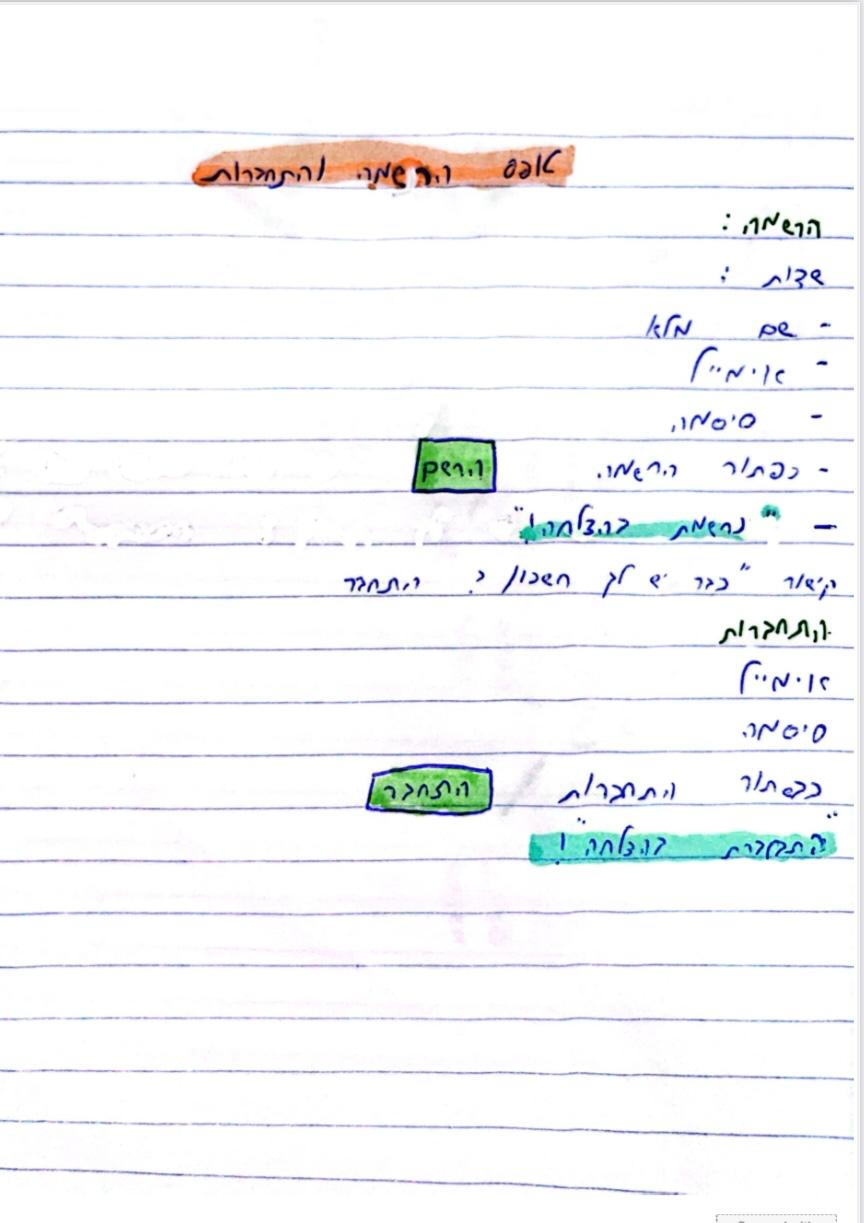 טופס הרשמה והתחברות
הרשמה:
שדות:
- שם מלא
- אימייל
- סיסמה
- כפתור הרשמה הרשם
- "נרשמת בהצלחה!"
קישור "כבר יש לך חשבון? התחבר
התחברות
אימייל
סיסמה
כפתור התחברות התחבר
"התחברת בהצלחה"!